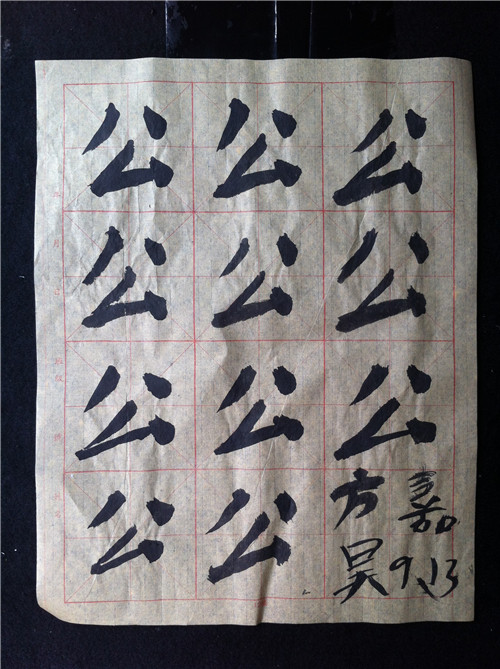 公 公 公
公 公 公
公 公 公
公 公 方 嘉
昊 9.13